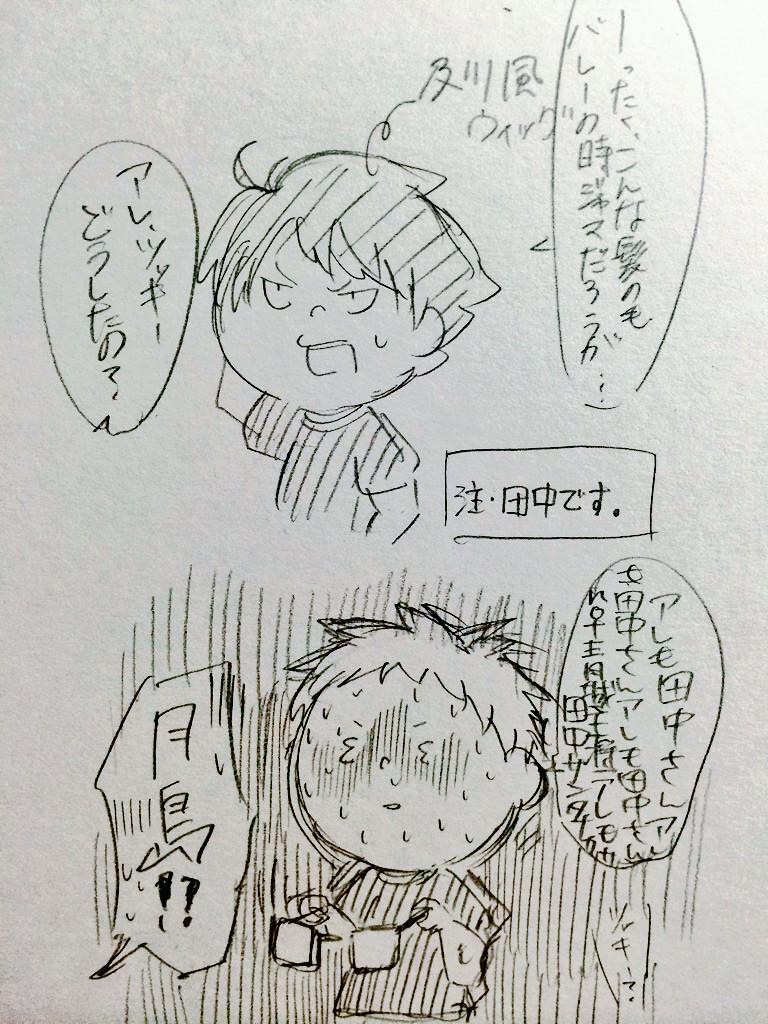 ーったく、こんな髪の毛
バレーの時ジャマだろうが…
及川風
ウィッグ
アレ、ツッキー
どうしたの?
注・田中です。
アレも田中さんアレ
も田中さんアレも田中さん
田中サン
月島!?
ツッキー?